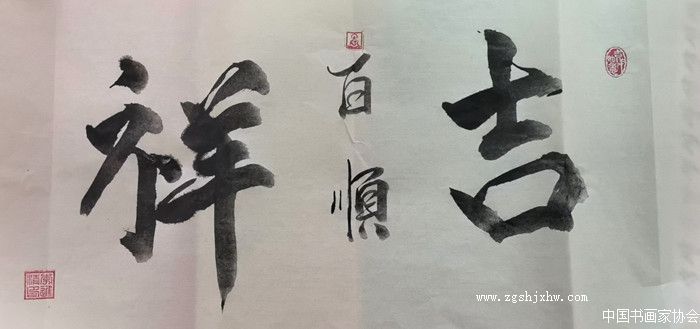 吉
百順
祥
www.zgshjxhw.com
中国书画家协会